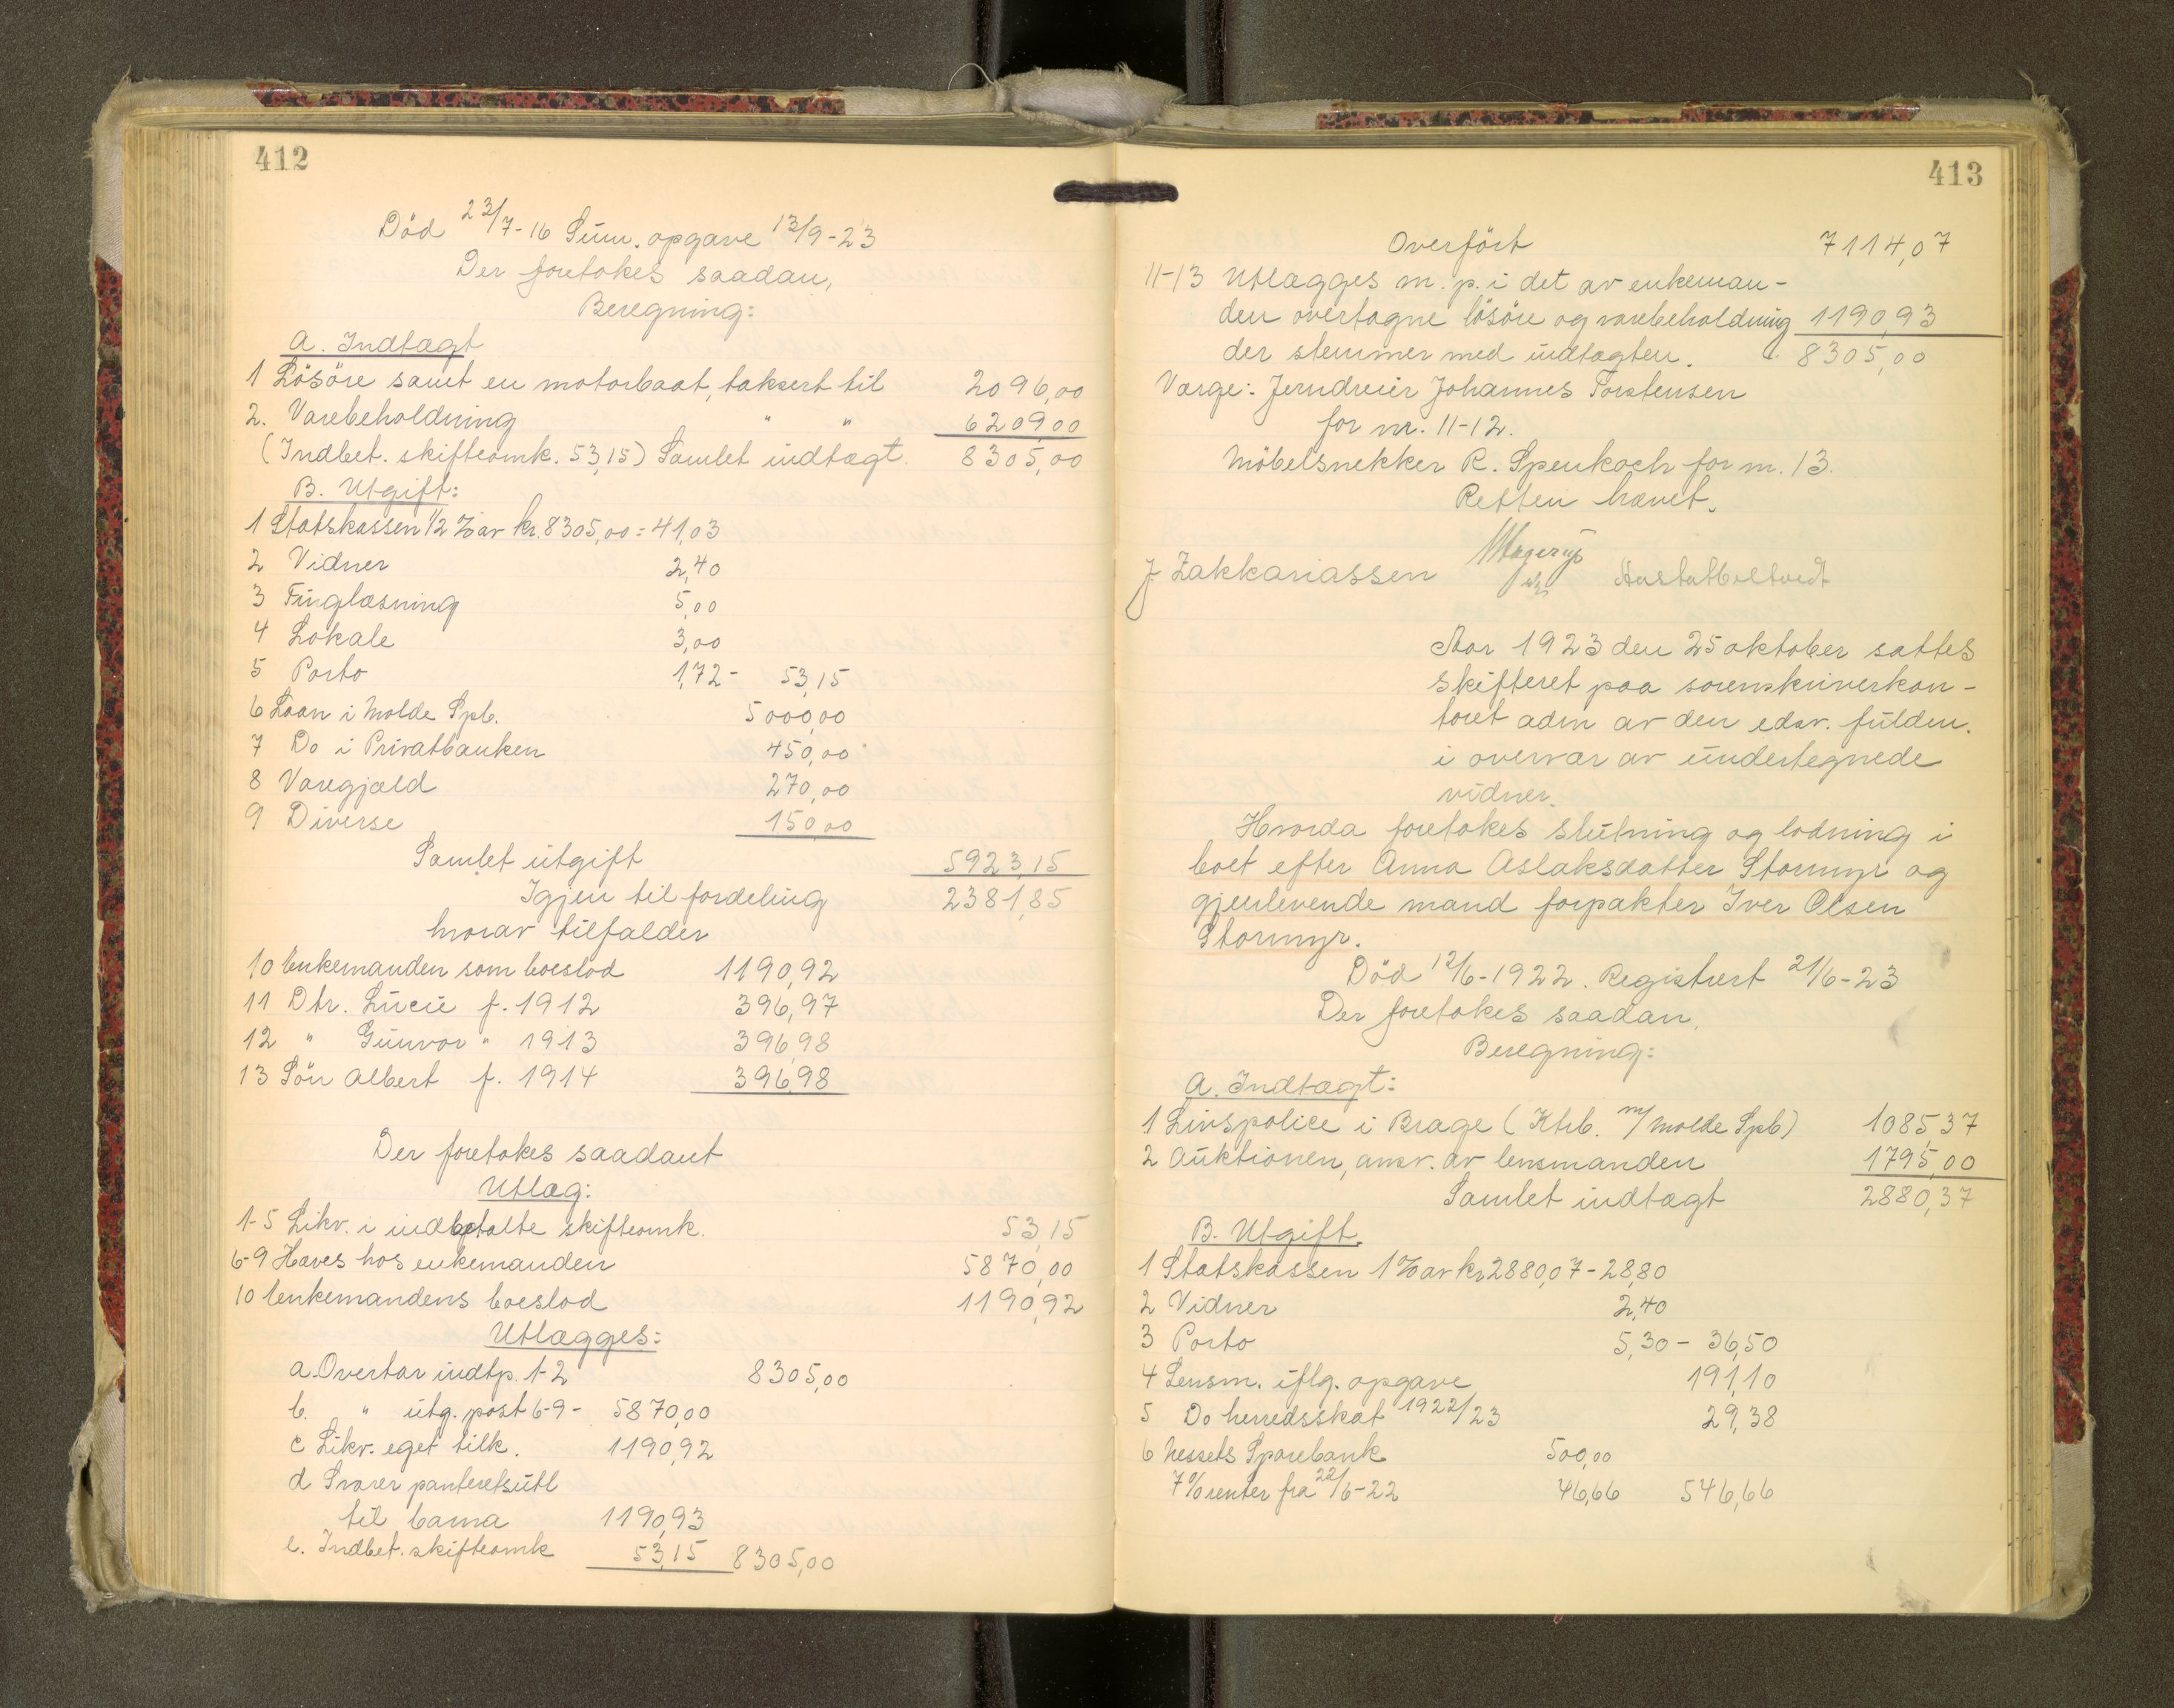 412
Död 23/7-16 Sum. opgave 13/9-23
Der foretokes saadan,
Beregning:
A. Indtægt
1 Lösöre samt en motorbaat, taksert til 2096,00
2. Varebeholdning " " 6209,00
(Indbet. skifteomk. 53,15) Samlet indtægt. 8305,00
B. Utgift:
1 Statskassen 1/2 % av kr. 8305,00 = 41,03
2 Vidner 2,40
3 Tinglæsning 5,00
4 Lokale 3,00
5 Porto 1,72 - 53,15
6 Laan i Molde Spb. 5000,00
7 Do i Privatbanken 450,00
8 Varegjæld 270,00
9 Diverse 150,00
Samlet utgift 5923,15
Igjen til fordeling 2381,85
hvorav tilfalder
10 Enkemanden som boeslod 1190,92
11 Dtr. Lucie f. 1912 396,97
12 " Gunvor " 1913 396,98
13 Sön Albert f. 1914 396,98
Der foretokes saadant
Utlæg:
1-5 Likv. i indbetalte skifteomk. 53,15
6-9 Haves hos enkemanden 5870,00
10 Enkemandens boeslod 1190,92
Utlægges:
a. Overtar indtp. 1-2 8305,00
b. " utg. post 6-9 - 5870,00
c Likv. eget tilk. 1190,92
d Svarer panteretsutl
til barna 1190,93
e. Indbet. skifteomk 53,15 8305,00
413
Overfört 7114,07
11-13 Utlægges m. p. i det av enkeman-
den overtagne lösöre og varebeholdning 1190,93
der stemmer med indtægten. 8305,00
Værge: Jerndreier Johannes Torstensen
for nr. 11-12.
Möbelsnekker R. Spenkoch for nr. 13.
Retten hævet.
J Zakkariassen
Aar 1923 den 25 oktober sattes
skifteret paa sorenskriverkon-
toret adm av den edsv. fuldm.
i overvær av undertegnede
vidner.
Hvorda foretokes slutning og lodning i
boet efter Anna Aslaksdatter Stormyr og
gjenlevende mand forpakter Iver Olsen
Stormyr.
Död 12/6-1922. Registrert 21/6-23
Der foretokes saadan,
Beregning:
A. Indtægt:
1 Livspolice i Brage (Ktrb. m/ Molde Spb) 1085,37
2 Auktionen, ansv. av lensmanden 1795,00
Samlet indtægt 2880,37
B. Utgift.
1 Statskassen 1 % av kr 2880,07 - 28,80
2 Vidner 2,40
3 Porto 5,30 - 36,50
4 Lensm. iflg. opgave 191,10
5 Do herredsskat 1922/23 29,38
6 Nessets Sparebank 500,00
7 % renter fra 22/6-22 46,66 546,66